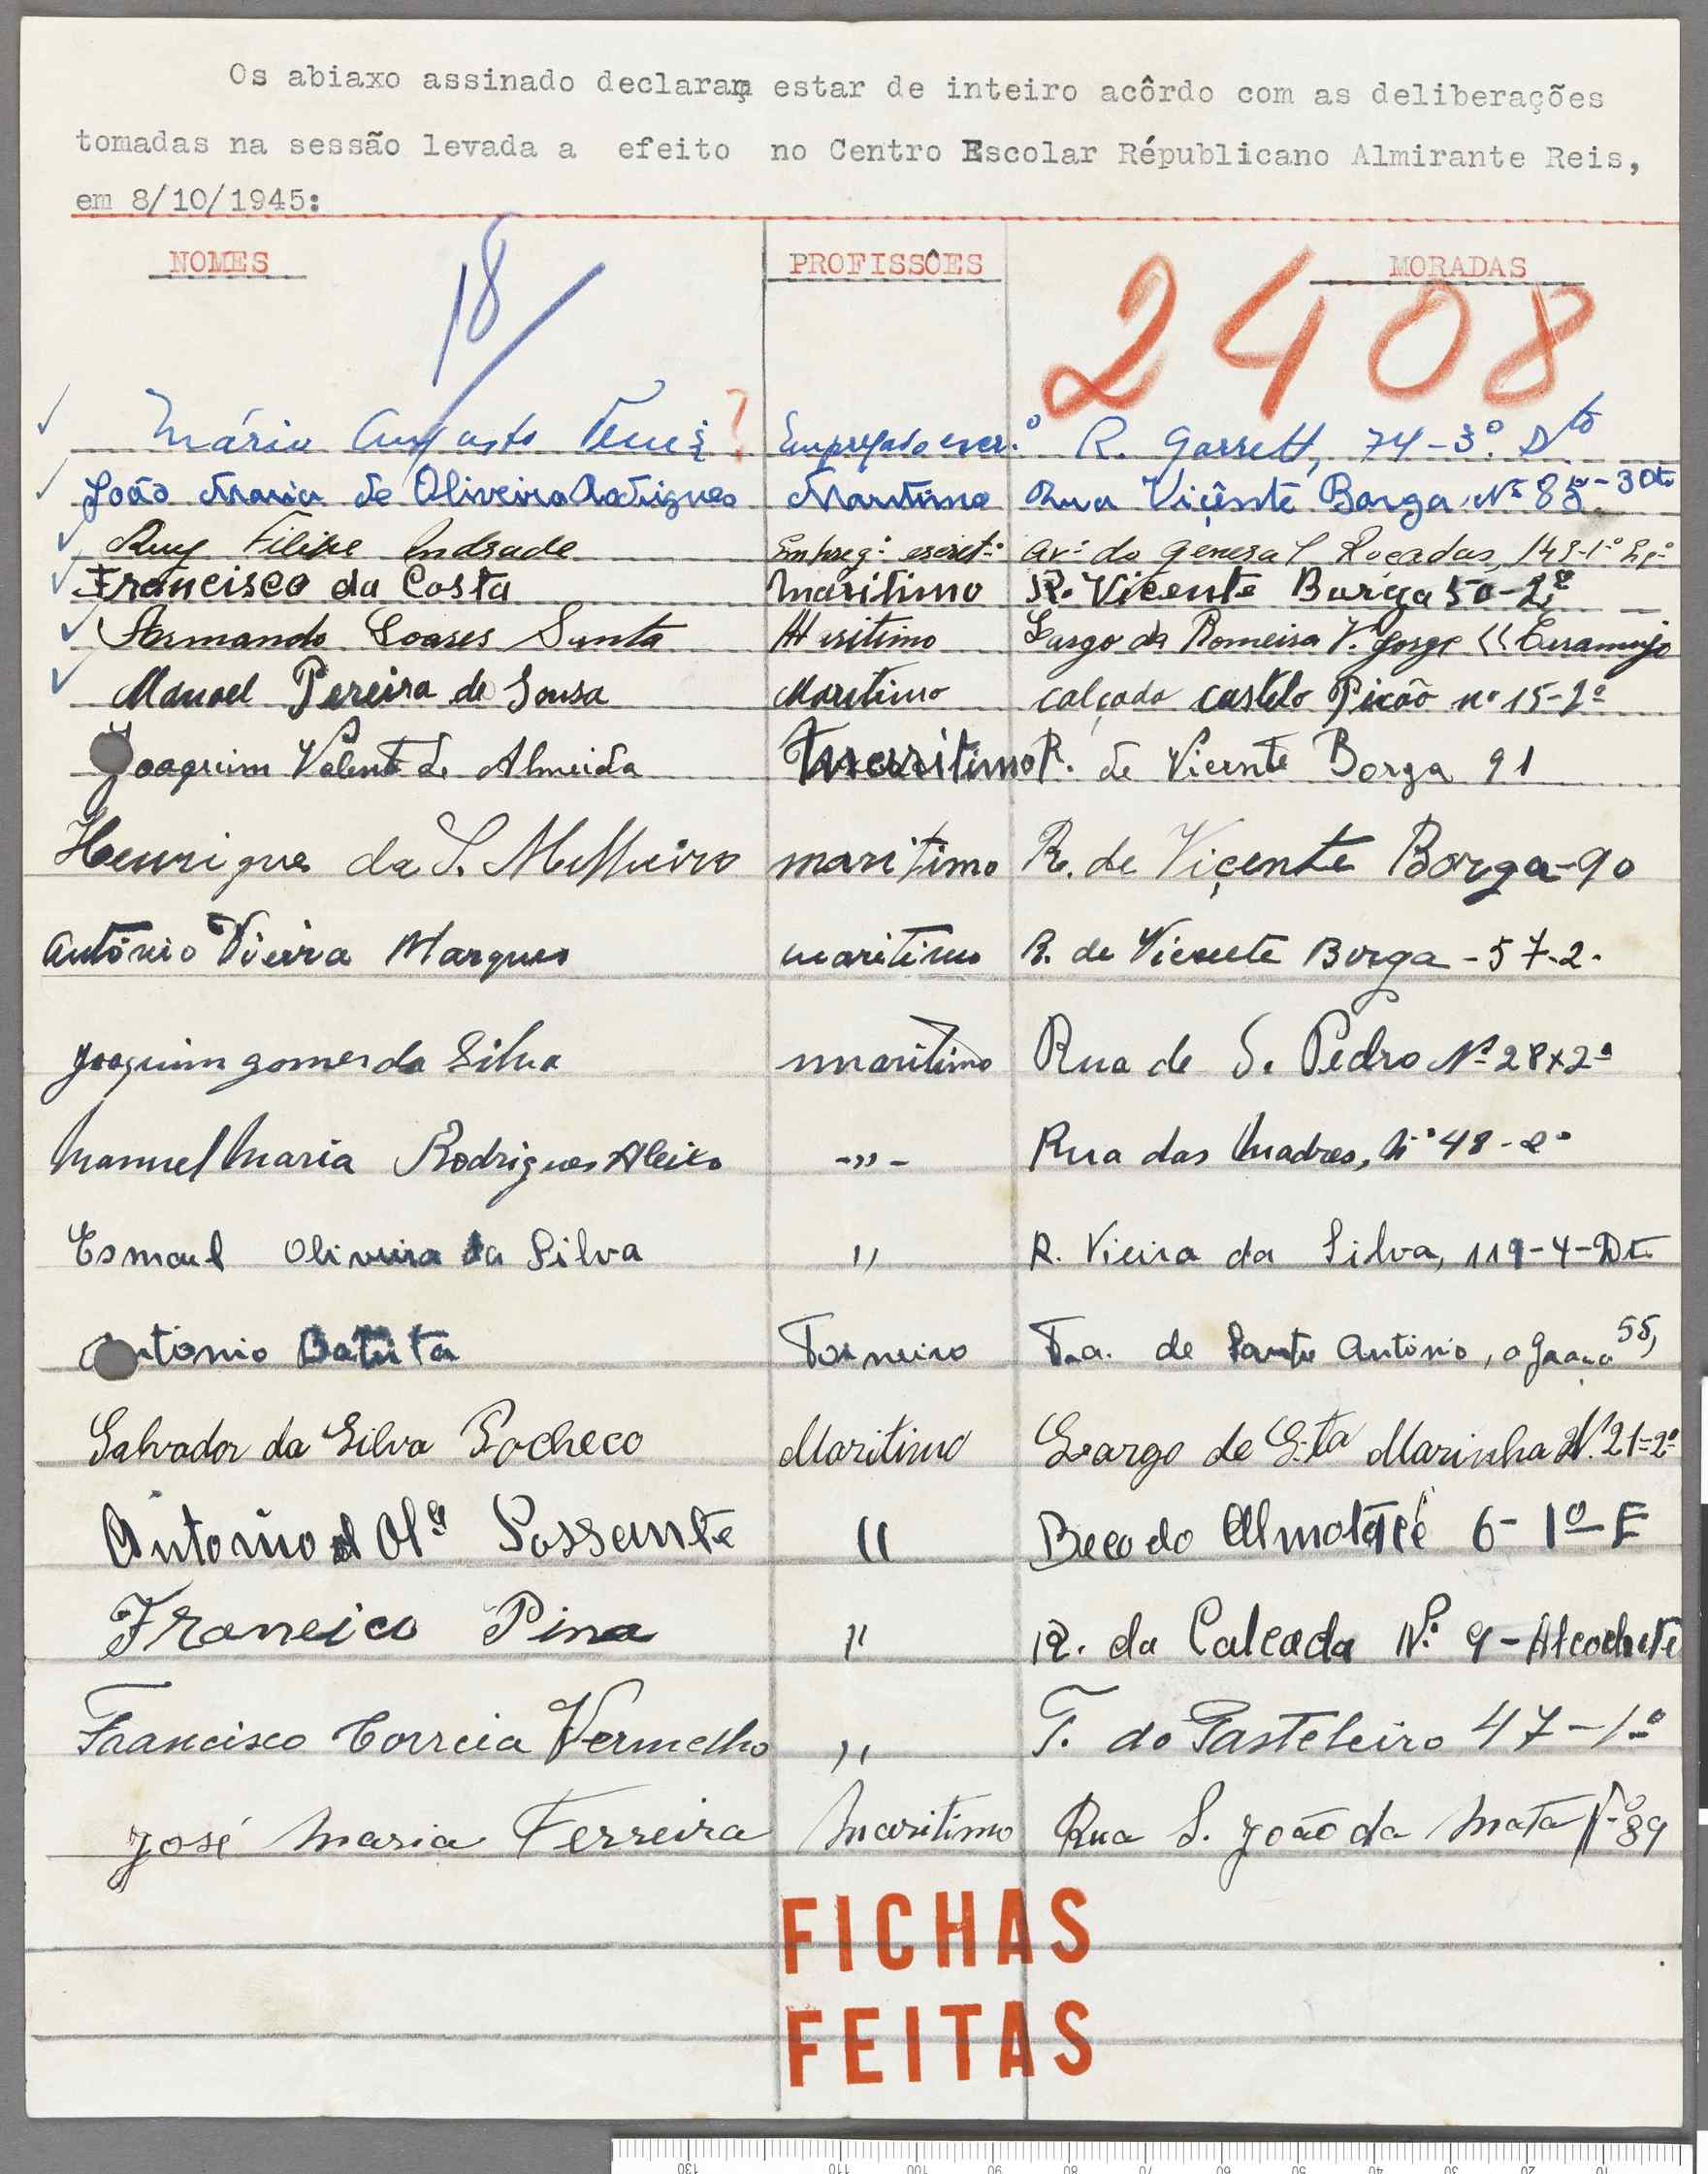 Os abiaxo assinado declaram estar de inteiro acôrdo com as deliberações
tomadas na sessão levada a efeito no Centro Escolar Républicano Almirante Reis,
em 8/10/1945:
NOMES PROFISSÕES MORADAS
18/ 2408
Mário Augusto ? R. Garrett, 74-3º. Dto
João Maria de Oliveira Rodrigues Maritimo Rua Viçente Borga Nº 85-3 Dto
Ruy Filipe Andrade Empregº escritº Avª do General Roçadas, 143-1º
Francisco da Costa maritimo R. Vicente Borga 50-2º
Armando Soares Santa Maritimo Largo da Romeira V. Jorge
Manoel Pereira de Sousa Maritimo calçada castelo Picão nº 15-2º
Joaquim Valente de Almeida maritimo R. de Vicente Borga 91
Henrique da S. Malhueiro maritimo R. de Viçente Borga-90
António Vieira Marques maritimo R. de Vicente Borga - 57-2.
Joaquim gomes da Silva maritimo Rua de S. Pedro Nº 28x2º
Manuel Maria Rodrigues Aleixo -"- Rua das Madres, Nº 48-2º
Esmael Oliveira da Silva " R. Vieira da Silva, 119-4-Dt
Antonio Batista Torneiro T.a. de Santo António, a Graça 55,
Salvador da Silva Pacheco Maritimo Largo de Sta Marinha N. 21=2º
Antonio d Olª Possante " Beco do Almotacé 6-1º-E
Francisco Pina " R. da Calcada Nº 9-Alcochete
Francisco Correia Vermelho " T. do Pasteleiro 47-1º
José Maria Ferreira Maritimo Rua S. João da Mata Nº 89
FICHAS
FEITAS
130 110 100 90 80 70 60 50 40 30 20 10